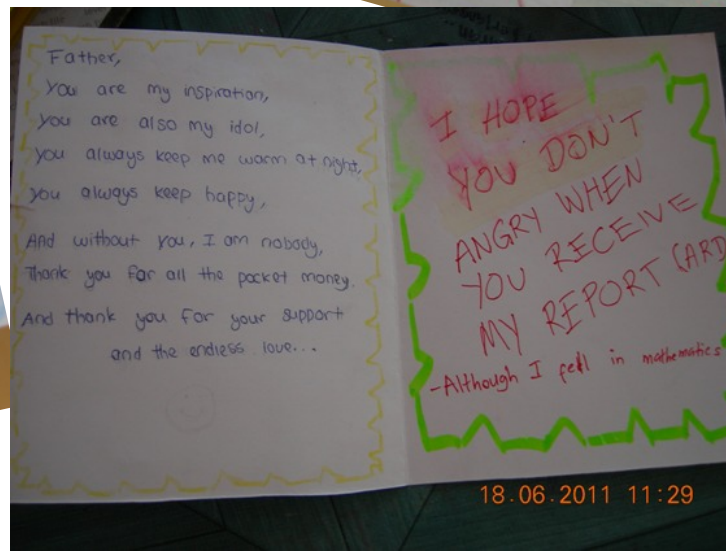 Father,
You are my inspiration,
You are also my idol,
You always keep me warm at night,
You always keep happy,
And without you, I am nobody,
Thank you for all the pocket money.
And thank you for your support
and the endless love...
I HOPE
YOU DON'T
ANGRY WHEN
YOU RECEIVE
MY REPORT CARD
-Although I fell in mathematics
18.06.2011 11:29